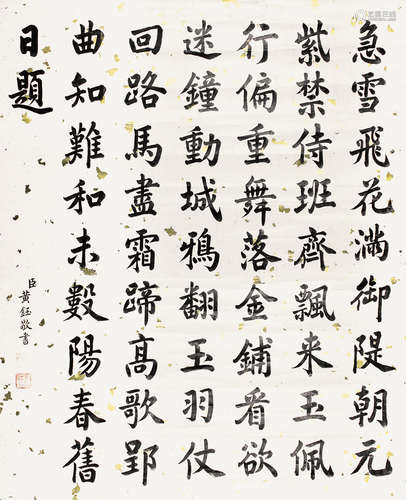 急雪飛花滿御隄朝元
紫禁侍班齊飄来玉佩
行偏重舞落金鋪看欲
迷鐘動城鴉翻玉羽仗
回路馬盡霜蹄高歌郢
曲知難和未數陽春舊
日題
臣黃鈺敬書